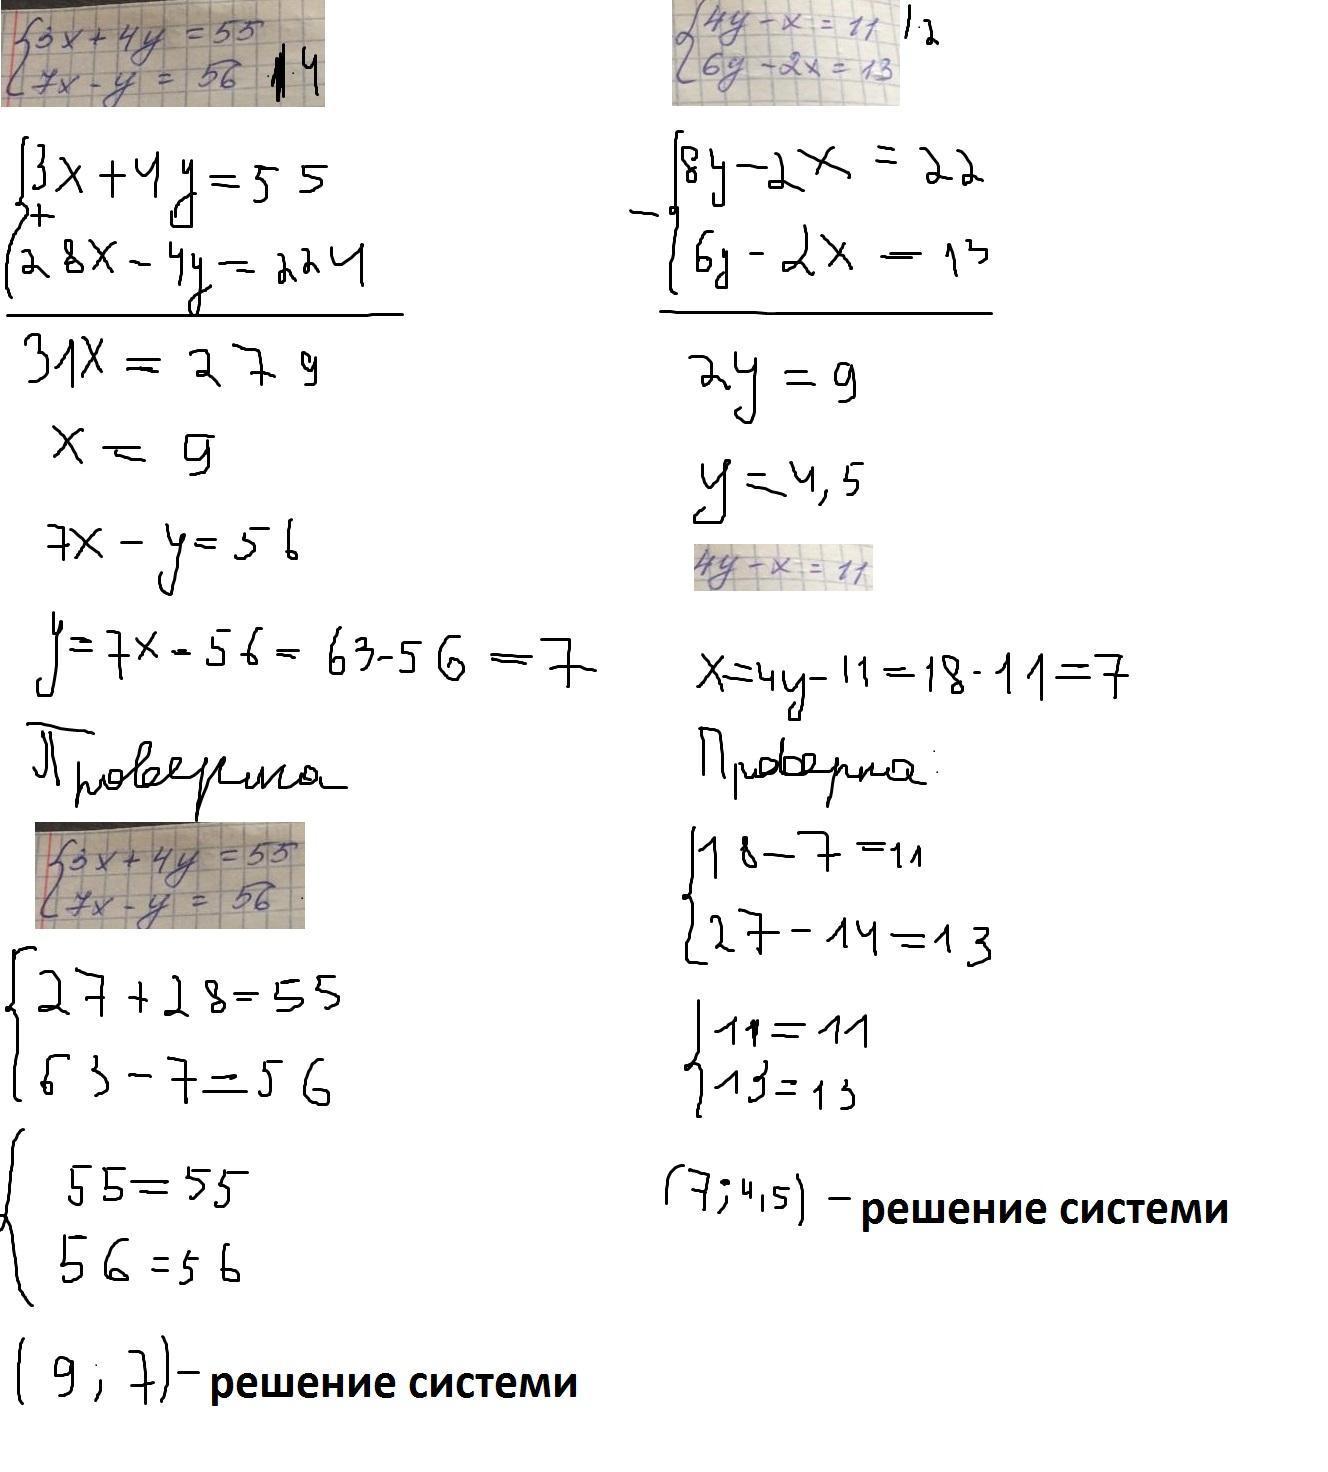 {3x + 4y = 55
{7x - y = 56 |·4
{3x + 4y = 55
+
{28x - 4y = 224
31x = 279
x = 9
7x - y = 56
y = 7x - 56 = 63 - 56 = 7
Проверка
{3x + 4y = 55
{7x - y = 56
{27 + 28 = 55
{63 - 7 = 56
{55 = 55
{56 = 56
(9; 7) - решение системи
{4y - x = 11 |·2
{6y - 2x = 13
{8y - 2x = 22
-
{6y - 2x = 13
2y = 9
y = 4,5
4y - x = 11
x = 4y - 11 = 18 - 11 = 7
Проверка
{18 - 7 = 11
{27 - 14 = 13
{11 = 11
{13 = 13
(7; 4,5) - решение системи